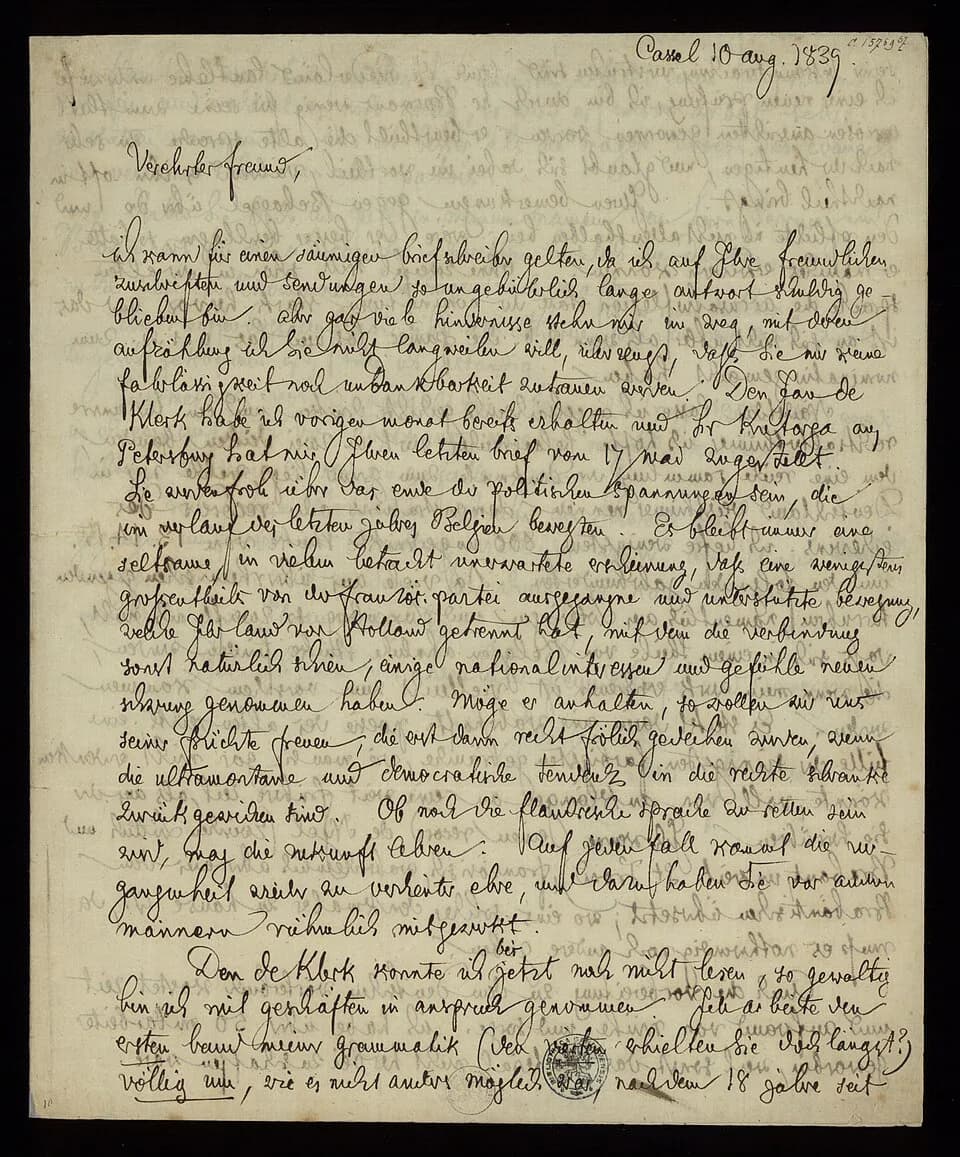 Cassel 10 aug. 1839.
Verehrter freund,
ich kann für einen säumigen briefschreiber gelten, da ich auf Ihre freundlichen
zuschriften und sendungen so ungebührlich lange antwort schuldig ge-
blieben bin. aber gar viele hindernisse stehn mir im weg, mit deren
aufzählung ich Sie nicht langweilen will, überzeugt, daſs Sie mir keine
fahrlässigkeit noch undankbarkeit zutrauen werden. Den Jan de
Klerk habe ich vorigen monat bereits erhalten und hr Kutorga aus
Petersburg hat mir Ihren letzten brief vom 17 mai zugestellt.
Sie werden froh über das ende der politischen spannungen sein, die
im verlauf des letzten jahres Belgien bewegten. Es bleibt immer eine
seltsame, in vielem betracht unerwartete erscheinung, daſs eine wenigstens
groſsentheils von der französ. partei ausgegangne und unterstützte bewegung,
welche Ihr land von Holland getrennt hat, mit dem die verbindung
sonst natürlich schien, einige nationalinteressen und gefühle neuen
schwung genommen haben. Möge er anhalten, so wollen wir uns
seiner früchte freuen, die erst dann recht frölich gedeihen werden, wenn
die ultramontane und democratische tendenz in die rechte schranke
zurückgewichen sind. Ob noch die flandrische sprache zu retten sein
wird, mag die zukunft lehren. Auf jeden fall kommt die ver-
gangenheit wieder zu verdienter ehre, und dazu haben Sie vor andern
männern rühmlich mitgewirkt.
Den de Klerk konnte ich bis jetzt noch nicht lesen, so gewaltig
bin ich mit geschäften in anspruch genommen. Ich arbeite den
ersten band meiner grammatik (den vierten erhielten Sie doch längst?)
völlig um, wie es nicht anders möglich war, nachdem 18 jahre seit